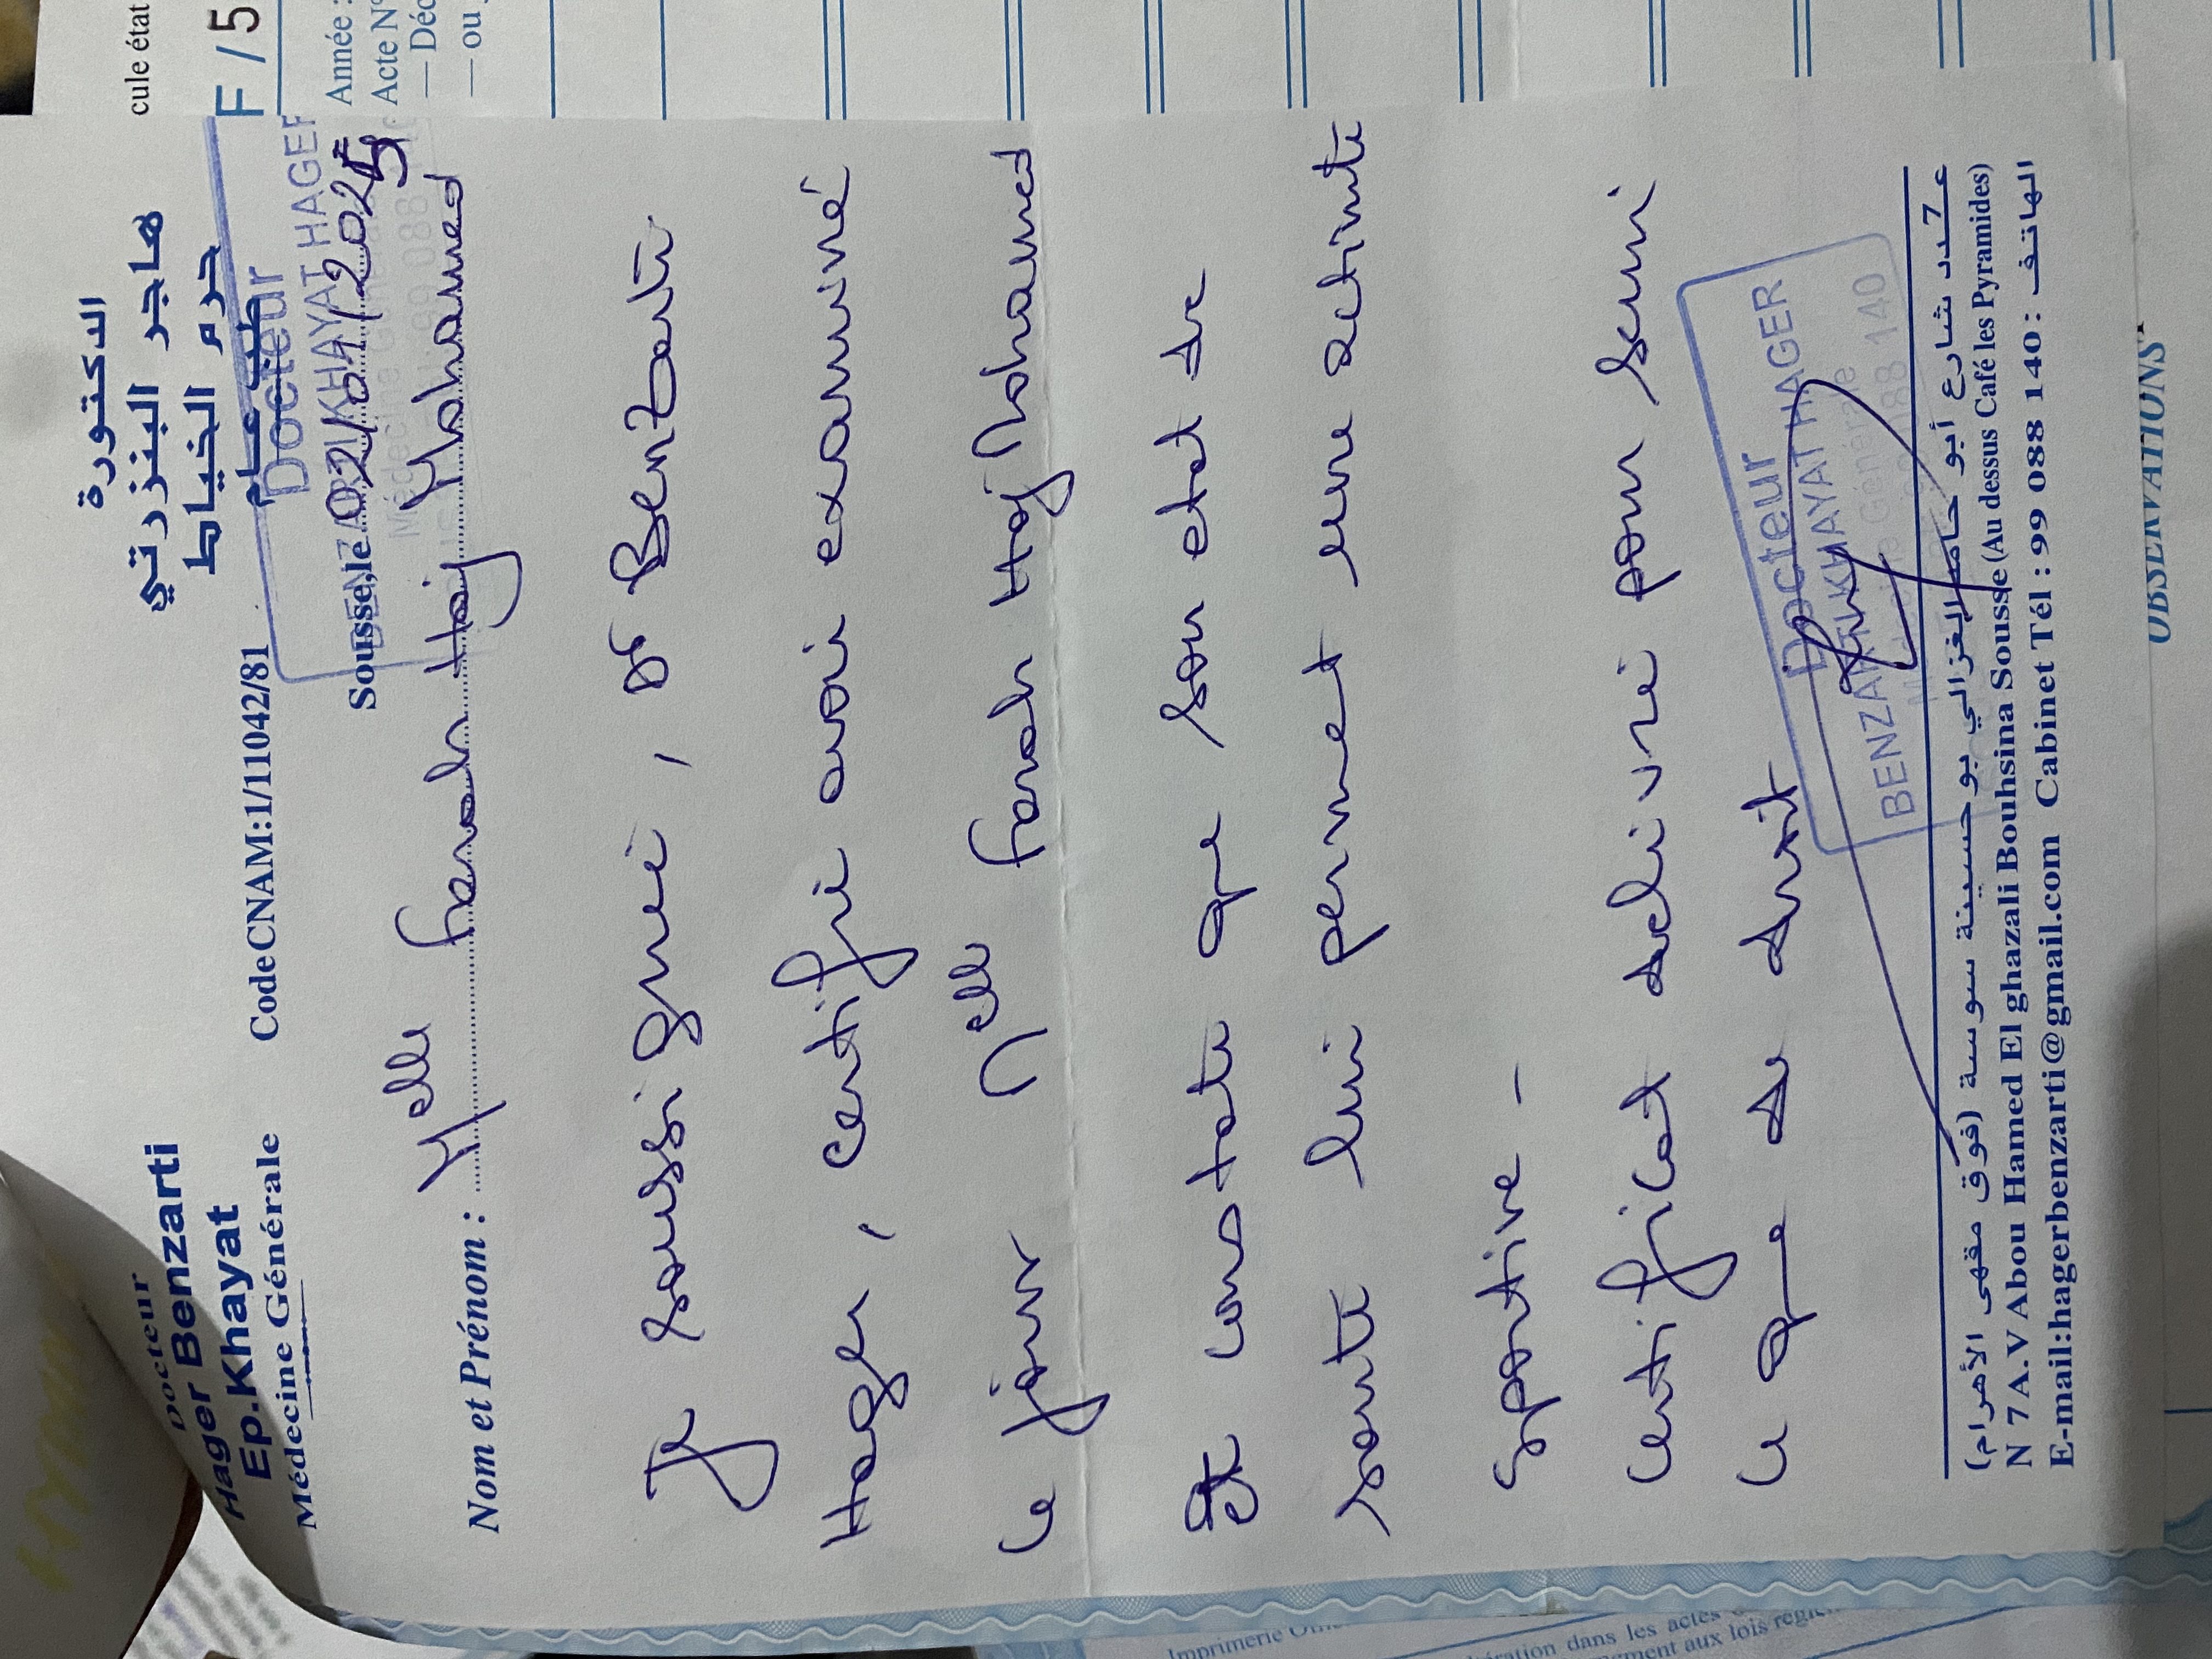 Docteur
Hager Benzarti
Ep.Khayat
Médecine Générale
Code CNAM:1/11042/81
الدكتورة
هاجر البنزرتي
حرم الخياط
طب عام
Docteur
KHAYAT HAGER
Sousse,le 02/01/2025
Nom et Prénom : Melle Farah Haj Mohamed
Je soussigné, Dr Benzarti
Hager, certifie avoir examiné
ce jour Melle Farah Haj Mohamed
et constate que son etat de
santé lui permet une activité
sportive -
certificat delivré pour servir
ce que de droit
Docteur
BENZARTI KHAYAT HAGER
Médecine Générale
99 088 140
عـ7ـدد شارع أبو حامد الغزالي بوحسينة سوسة (فوق مقهى الأهرام)
N 7 A.V Abou Hamed El ghazali Bouhsina Sousse (Au dessus Café les Pyramides)
E-mail:hagerbenzarti@gmail.com Cabinet Tél : 99 088 140 : الهاتف
cule état
F / 5
Année :
Acte N°
— Déc
— ou
OBSERVATIONS
Imprimerie
ération dans les actes
ment aux lois